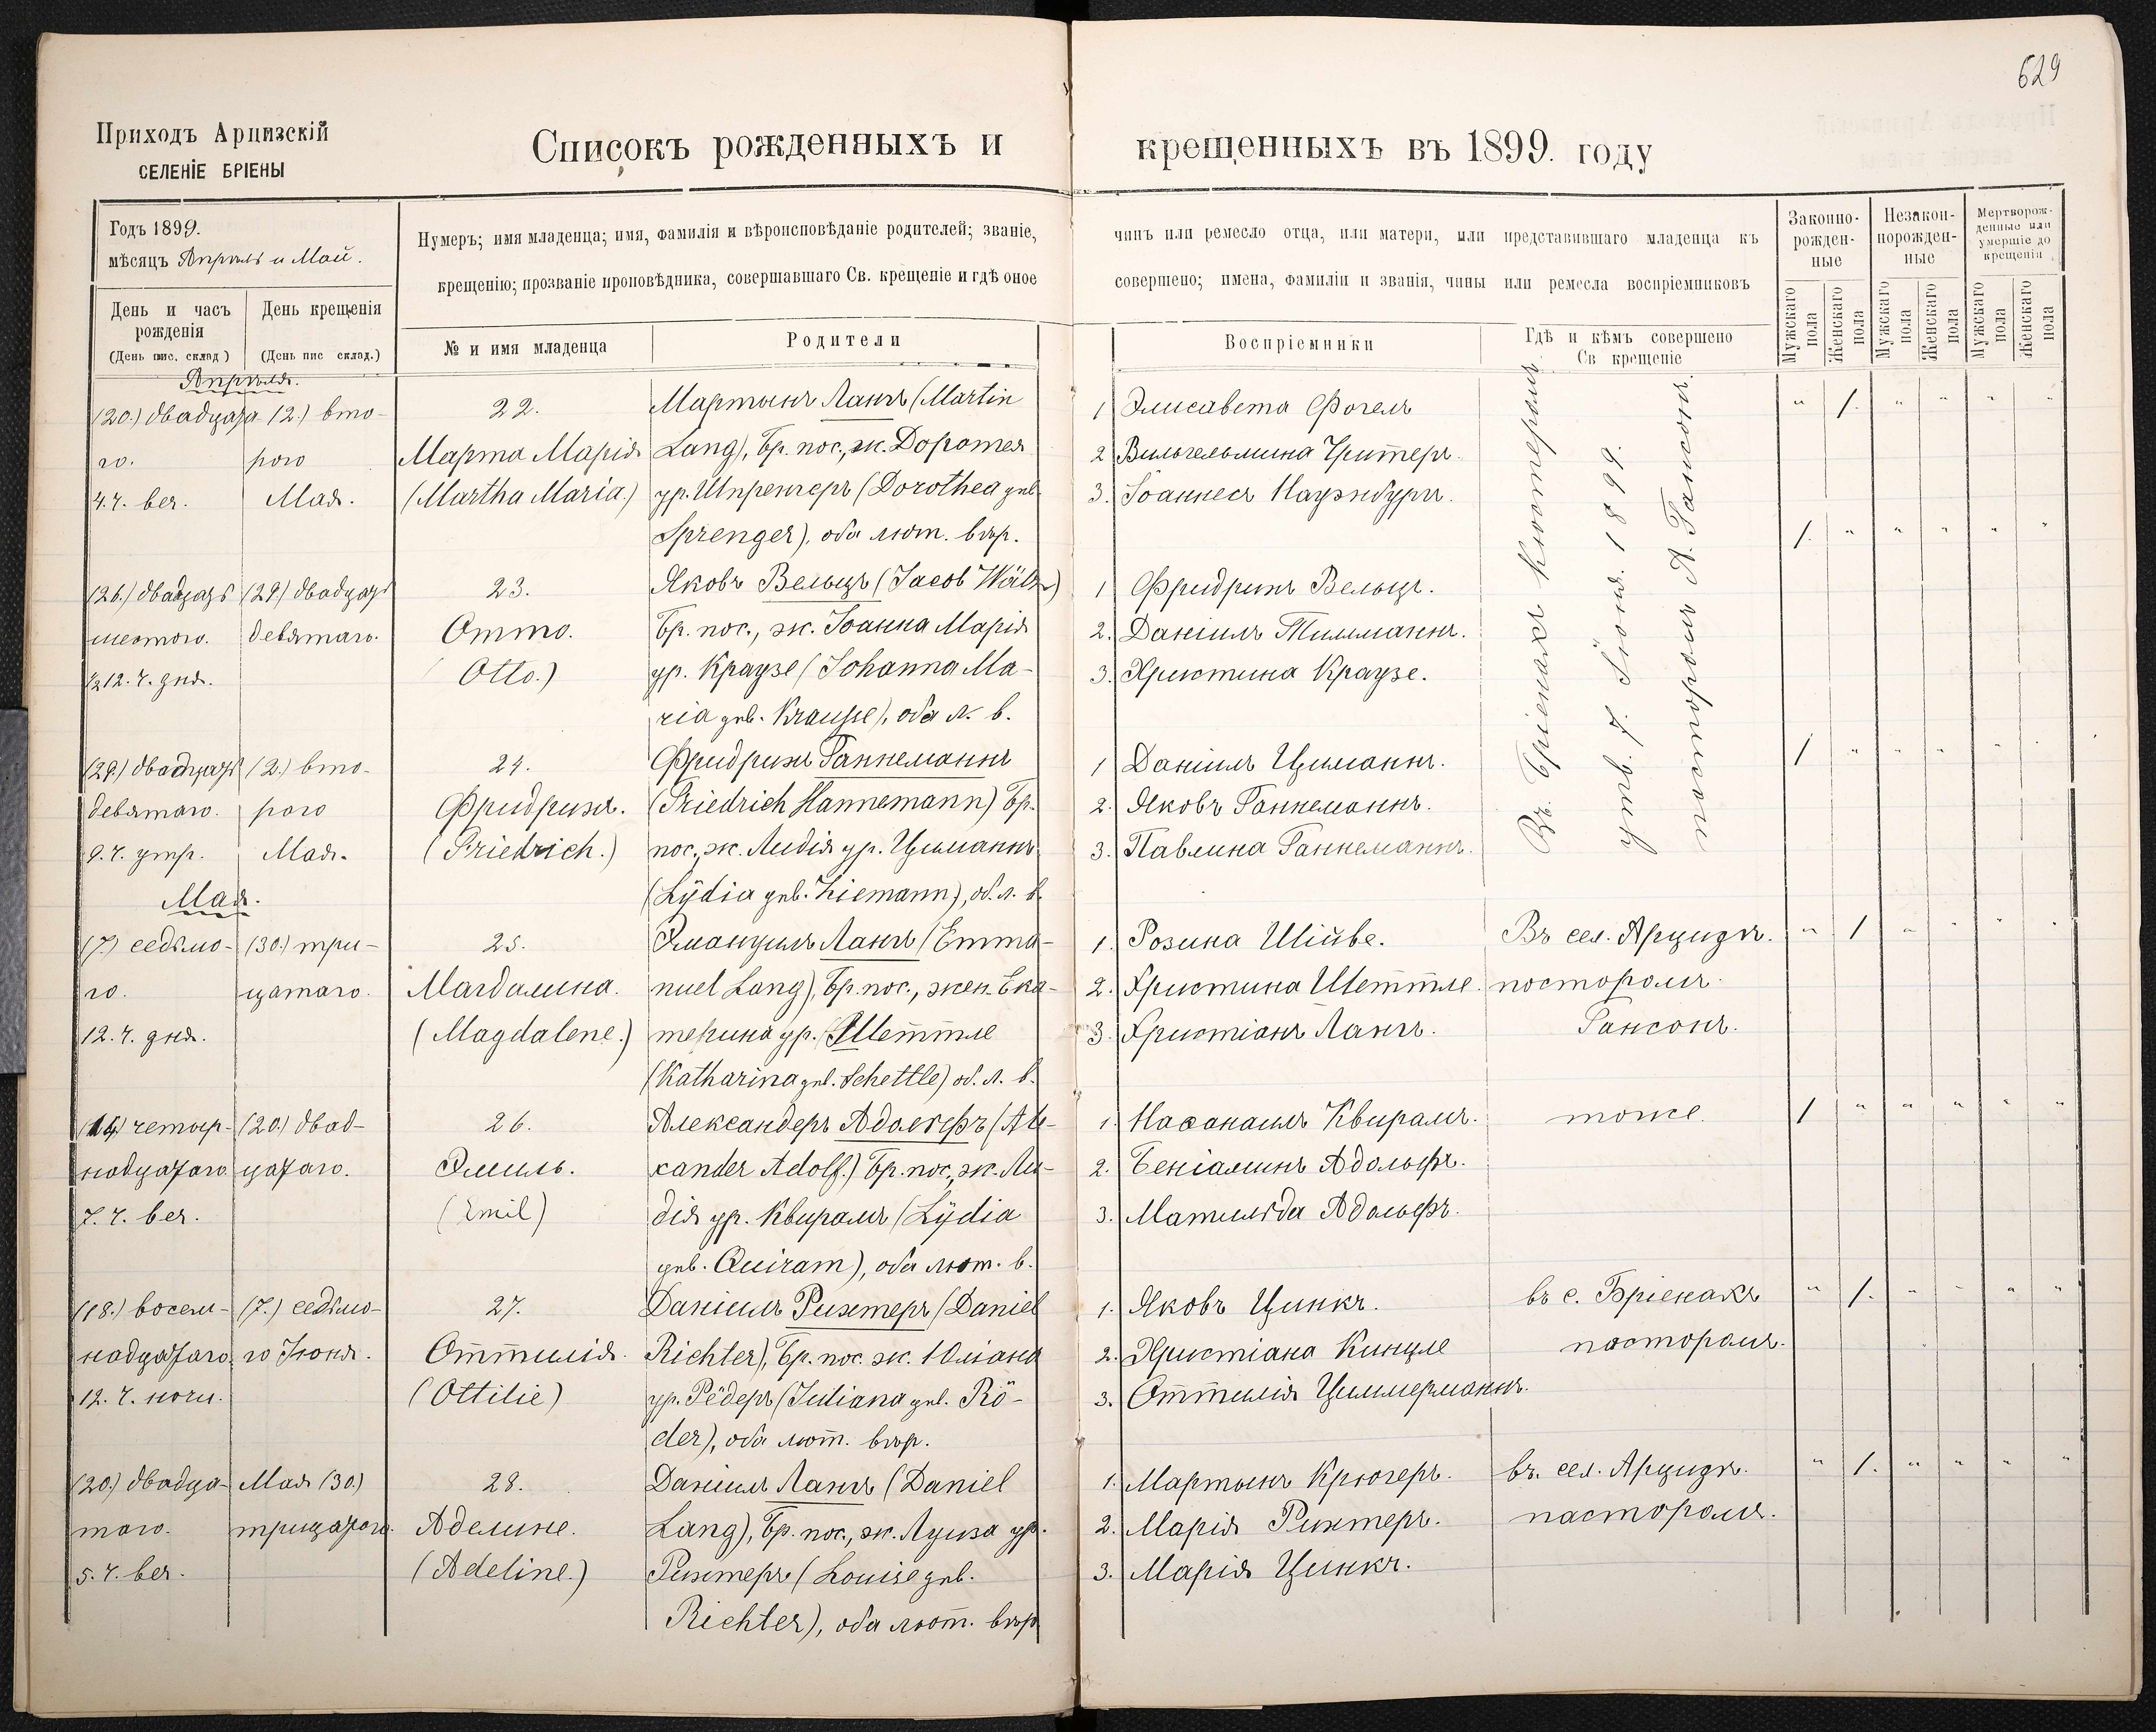 629
Приходъ Арцизскій
СЕЛЕНІЕ БРІЕНЫ
Списокъ рожденныхъ и крещенныхъ въ 1899. году
Годъ 1899.
мѣсяцъ Апрѣль и Май.
День и часъ рожденія
(День пис. склад)
День крещенія
(День пис склад.)
Нумеръ; имя младенца; имя, фамилія и вѣроисповѣданіе родителей; званіе, чинъ или ремесло отца, или матери, или представившаго младенца къ
крещенію; прозваніе проповѣдника, совершавшаго Св. крещеніе и гдѣ оное совершено; имена, фамиліи и званія, чины или ремесла воспріемниковъ
№ и имя младенца
Родители
Воспріемники
Гдѣ и кѣмъ совершено
Св крещеніе
Законно-
рожден-
ные
Незакон-
норожден-
ные
Мертворож-
денные или
умершіе до
крещенія
Мужскаго пола
Женскаго пола
Мужскаго пола
Женскаго пола
Мужскаго пола
Женскаго пола
Апрѣля.
(20.) двадцата-
го.
4. ч. веч.
(2.) вто-
рого
Мая.
22.
Марта Марія
(Martha Maria.)
Мартынъ Лангъ (Martin
Lang), Бр. пос., ж. Доротея
ур. Шпренгеръ (Dorothea ув.
Sprenger), оба лют. вѣр.
1 Элисавета Фогель
2 Вильгельмина Критеръ.
3. Іоаннесъ Науэнбургъ.
" 1. " " " "
(26.) двадцать
шестого.
½12. ч. дня.
(29.) двадцать
девятаго.
23.
Отто.
(Otto.)
Яковъ Вельцъ (Jacob Wälz)
Бр. пос., ж. Іоанна Марія
ур. Краузе (Johanna Ma-
ria ув. Krause), оба л. в.
1 Фридрихъ Вельцъ.
2. Даніилъ Тиллманнъ.
3. Христина Краузе.
1. " " " " "
(29.) двадцать
девятаго.
9. ч. утр.
(2.) вто-
рого
Мая.
24.
Фридрихъ.
(Friedrich.)
Фридрихъ Ганнеманнъ
(Friedrich Hannemann) Бр.
пос., ж. Лидія ур. Циманнъ
(Lÿdia ув. Ziemann), об. л. в.
1 Даніилъ Циманнъ.
2. Яковъ Ганнеманнъ.
3. Павлина Ганнеманнъ.
1 " " " " "
Въ Бріенахъ Кистеромъ
утв. 7. Іюня. 1899.
пасторомъ А. Гансонъ.
Мая.
(7.) седьмо-
го.
12. ч. дня.
(30.) три-
цатаго.
25.
Магдалина.
(Magdalene.)
Эмануилъ Лангъ (Emma-
nuel Lang), Бр. пос., жен. Ека-
терина ур. Шеттле
(Katharina ув. Schettle) об. л. в.
1. Розина Шійве.
2. Христина Шеттле.
3. Христіанъ Лангъ.
Въ сел. Арцизъ.
пасторомъ
Гансонъ.
" 1 " " " "
(14) четыр-
надцатаго
7. ч. веч.
(20.) двад-
цатаго.
26.
Эмиль.
(Emil)
Александеръ Адольфъ (Ale-
xander Adolf.) Бр. пос., ж. Ли-
дія ур. Квирамъ (Lÿdia
ув. Quiram), оба лют. в.
1. Насанаилъ Квирамъ.
2. Беніаминъ Адольфъ.
3. Матильда Адольфъ.
тоже.
1 " " " " "
(18.) восем-
надцатаго
12. ч. ночи.
(7.) седьмо-
го Іюня.
27.
Оттилія.
(Ottilie)
Даніилъ Рихтеръ (Daniel
Richter), Бр. пос. ж. Юліана
ур. Рёдеръ (Juliana ув. Rö-
der), оба лют. вѣр.
1. Яковъ Цинкъ.
2. Христіана Кинцле
3. Оттилія Циммерманнъ.
въ с. Бріенахъ
пасторомъ.
" 1. " " " "
(20.) двадца-
таго.
5. ч. веч.
Мая (30.)
трицатаго.
28.
Аделине.
(Adeline.)
Даніилъ Лангъ (Daniel
Lang), Бр. пос., ж. Луиза ур.
Рихтеръ (Louise ув.
Richter), оба лют. вѣр
1. Мартынъ Крюгеръ.
2. Марія Рихтеръ.
3. Марія Цинкъ.
въ. сел. Арцизъ.
пасторомъ.
" 1. " " " "